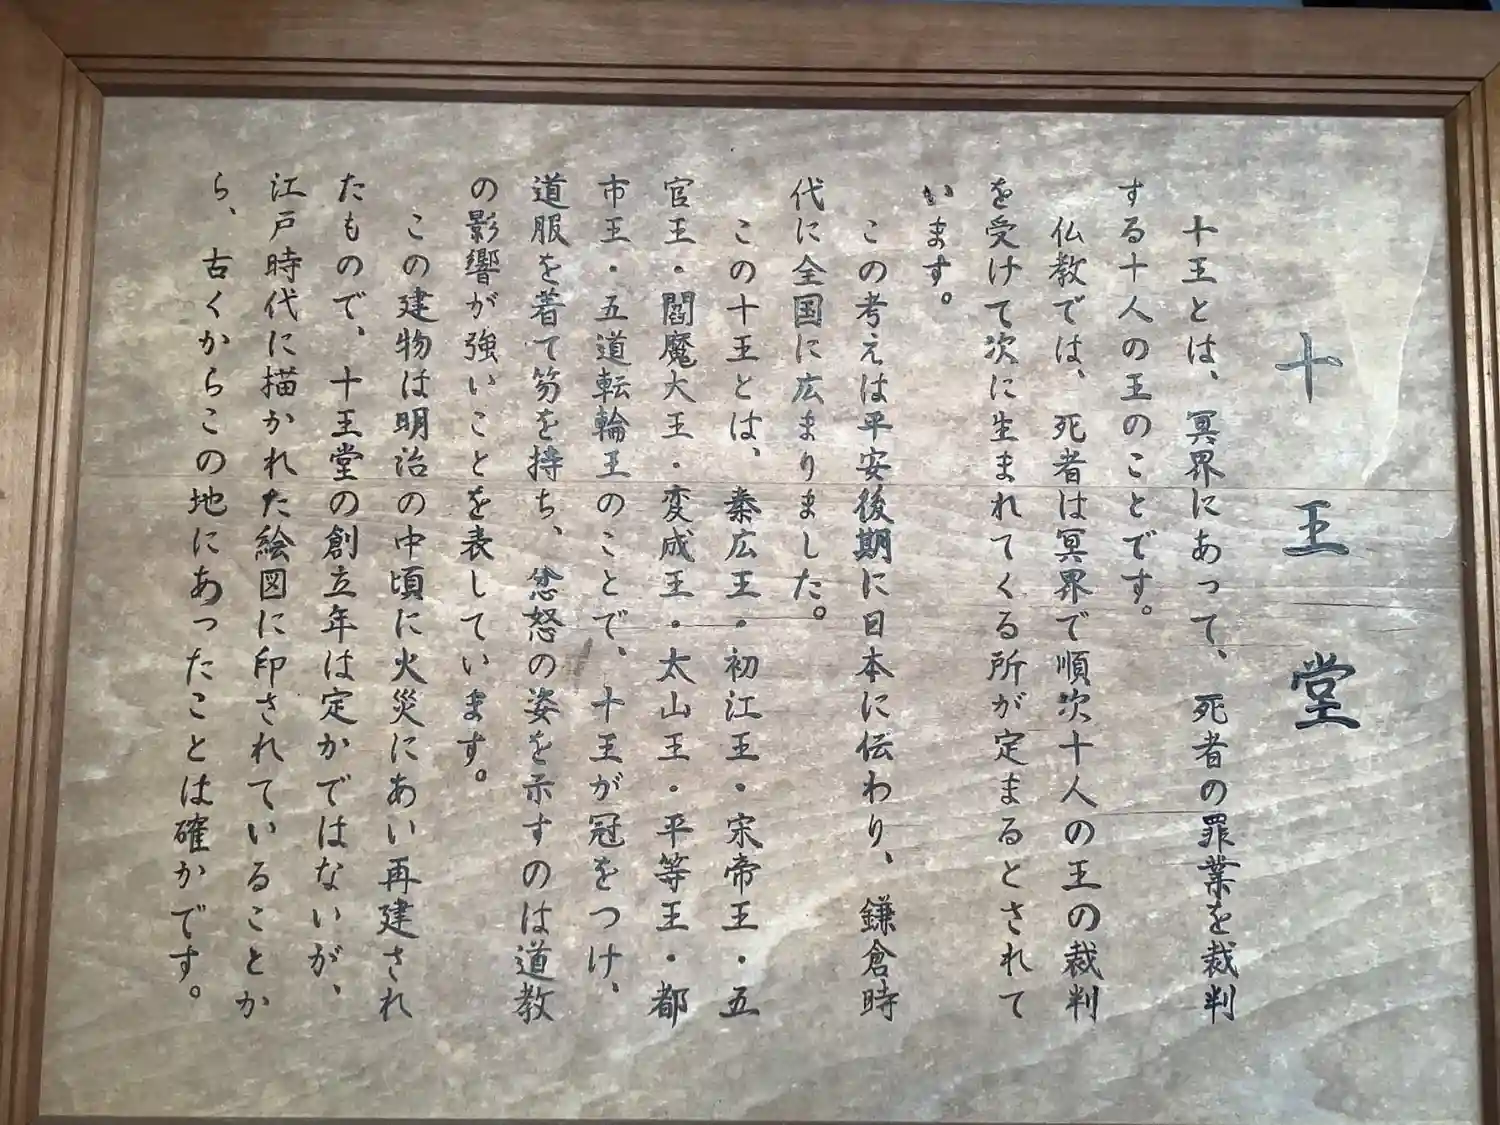 十王堂
十王とは、冥界にあって、死者の罪業を裁判
する十人の王のことです。
仏教では、死者は冥界で順次十人の王の裁判
を受けて次に生まれてくる所が定まるとされて
います。
この考えは平安後期に日本に伝わり、鎌倉時
代に全国に広まりました。
この十王とは、秦広王・初江王・宋帝王・五
官王・閻魔大王・変成王・太山王・平等王・都
市王・五道転輪王のことで、十王が冠をつけ、
道服を着て笏を持ち、忿怒の姿を示すのは道教
の影響が強いことを表しています。
この建物は明治の中頃に火災にあい再建され
たもので、十王堂の創立年は定かではないが、
江戸時代に描かれた絵図に印されていることか
ら、古くからこの地にあったことは確かです。